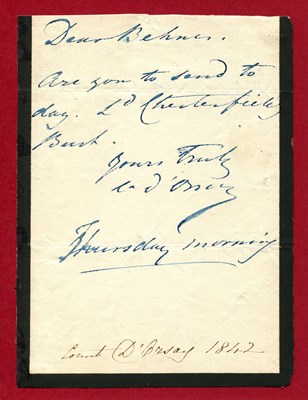 Dear Behnes.
Are you to send to
day. Ld Chesterfield
Bust.
Yours Truly
Ct d'Orsay
Thursday morning
Count D'Orsay 1842